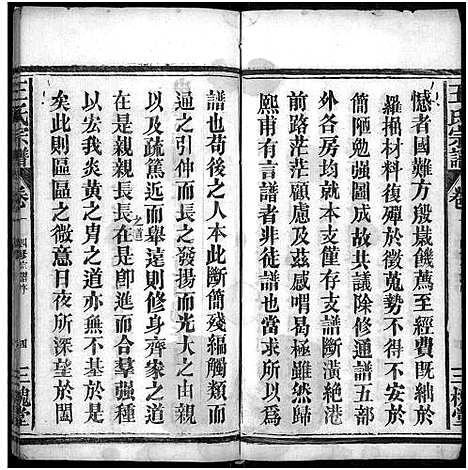 憾者國難方殷歲饑薦至經費既絀於
羅掘材料復殫於徵蒐勢不得不安於
簡陋勉强圖成故共議除修通譜五部
外各房均支譜僅存支譜斷潢絶港
前路茫茫顧影滋感喟曷極雖然歸
熙甫有言譜者非徒譜
譜也苟後之人本此斷簡殘編擴而
遍之引伸而長之發揚而光大之由親
以及疏篤近而舉遠則千支一本之道
在是親親長長之道在是卽進而修身齊家之道
以宏我炎黃之胄之道亦無不基於是
矣此則區區之微意日夜所深望於閤
王氏宗譜
卷一
四
三槐堂
王氏宗譜
卷
三槐堂